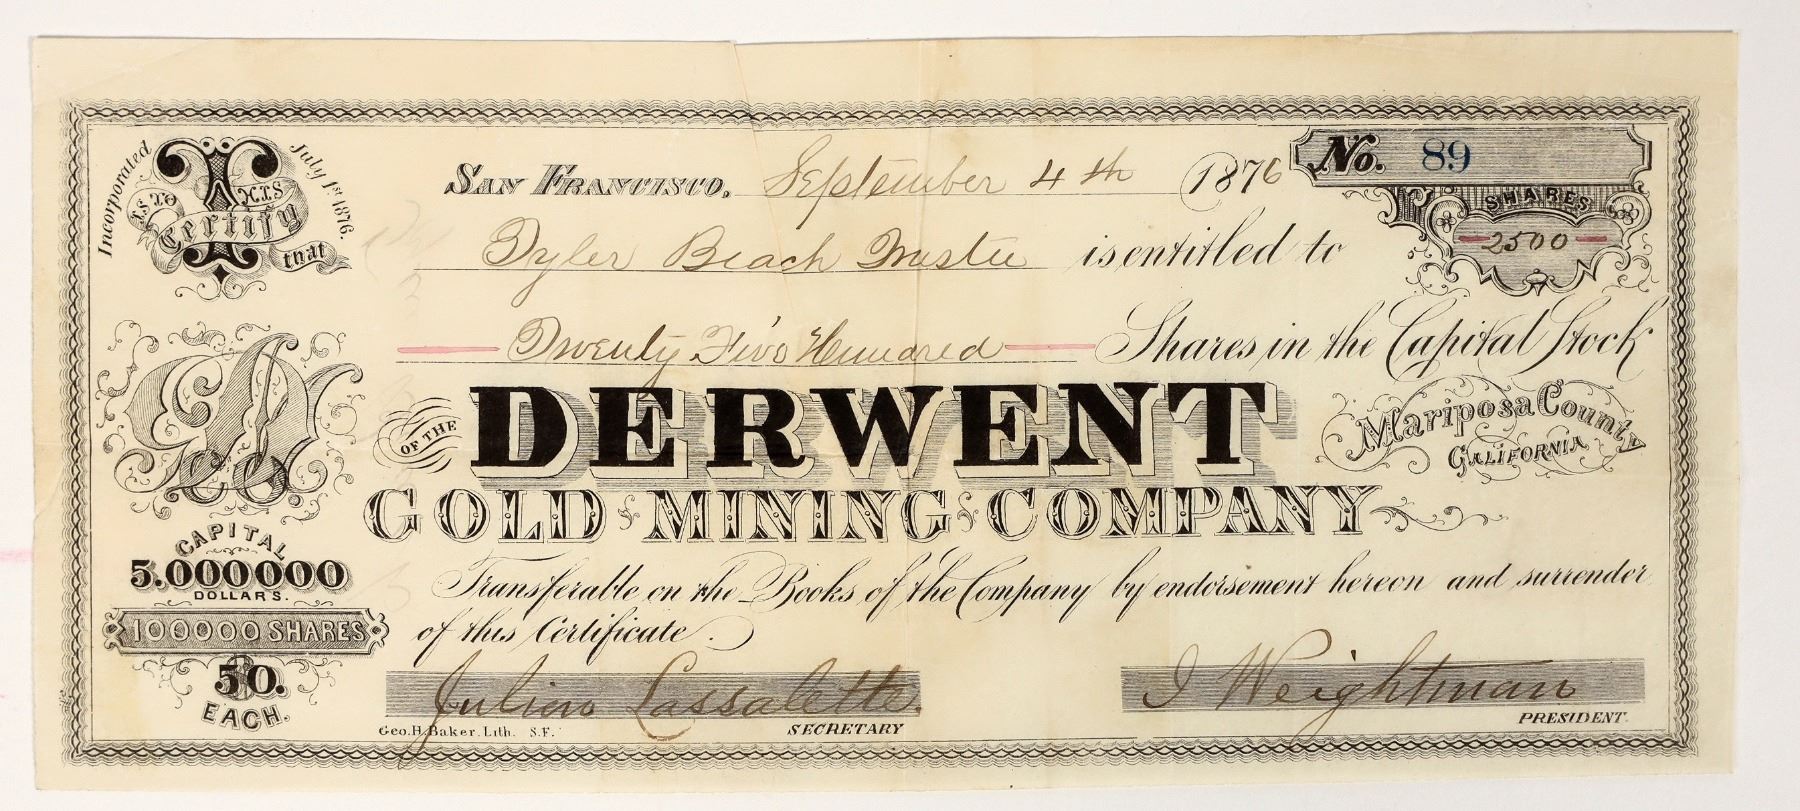 Incorporated July 1st 1876.
THIS IS TO
Certify
that
SAN FRANCISCO, September 4th 1876
No. 89
SHARES
2500
Tyler Beach Trustee is entitled to
Twenty Five Hundred Shares in the Capital Stock
OF THE DERWENT
Mariposa County
CALIFORNIA
GOLD MINING COMPANY
CAPITAL
5.000000
DOLLARS.
100000 SHARES
$50.
EACH.
Transferable on the Books of the Company by endorsement hereon and surrender
of this Certificate.
Julian Lassalette.
SECRETARY
J Weightman
PRESIDENT.
Geo. H. Baker. Lith. S.F.